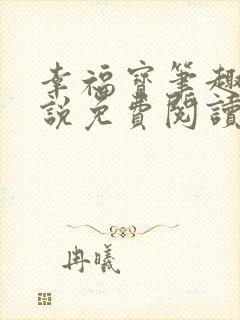 幸福寶筆趣
說免費閱讀
冉曦